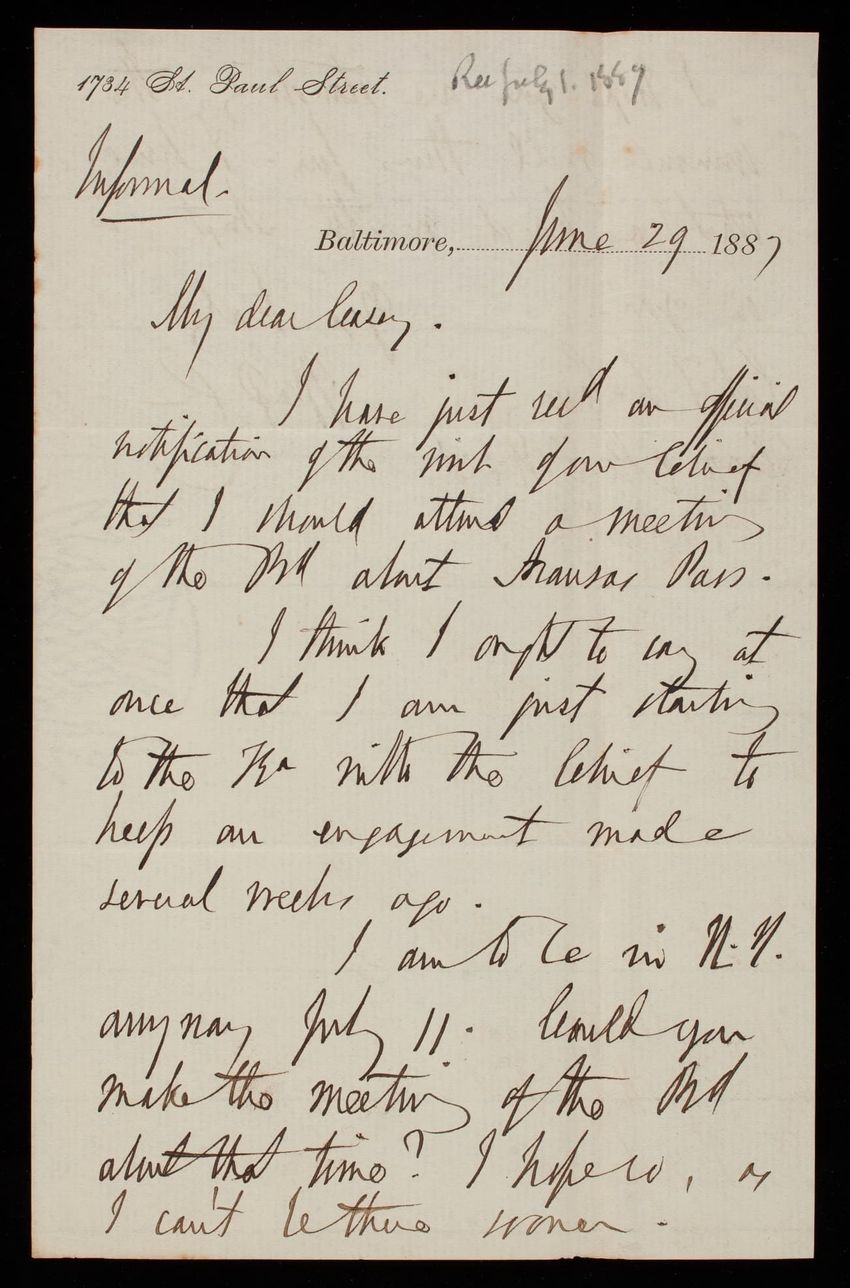 1734 St. Paul Street.
Rec July 1. 1887
Informal.
Baltimore, June 29 1887
My dear Casey.
I have just recd an official
notification of the wish of our Chief
that I should attend a meeting
of the Bd about Aransas Pass.
I think I ought to say at
once that I am just starting
to the Ka with the Chief to
keep an engagement made
several weeks ago.
I am to be in N.Y.
anyway July 11. Could you
make the meeting of the Bd
about that time? I hope so, as
I can't be there sooner.